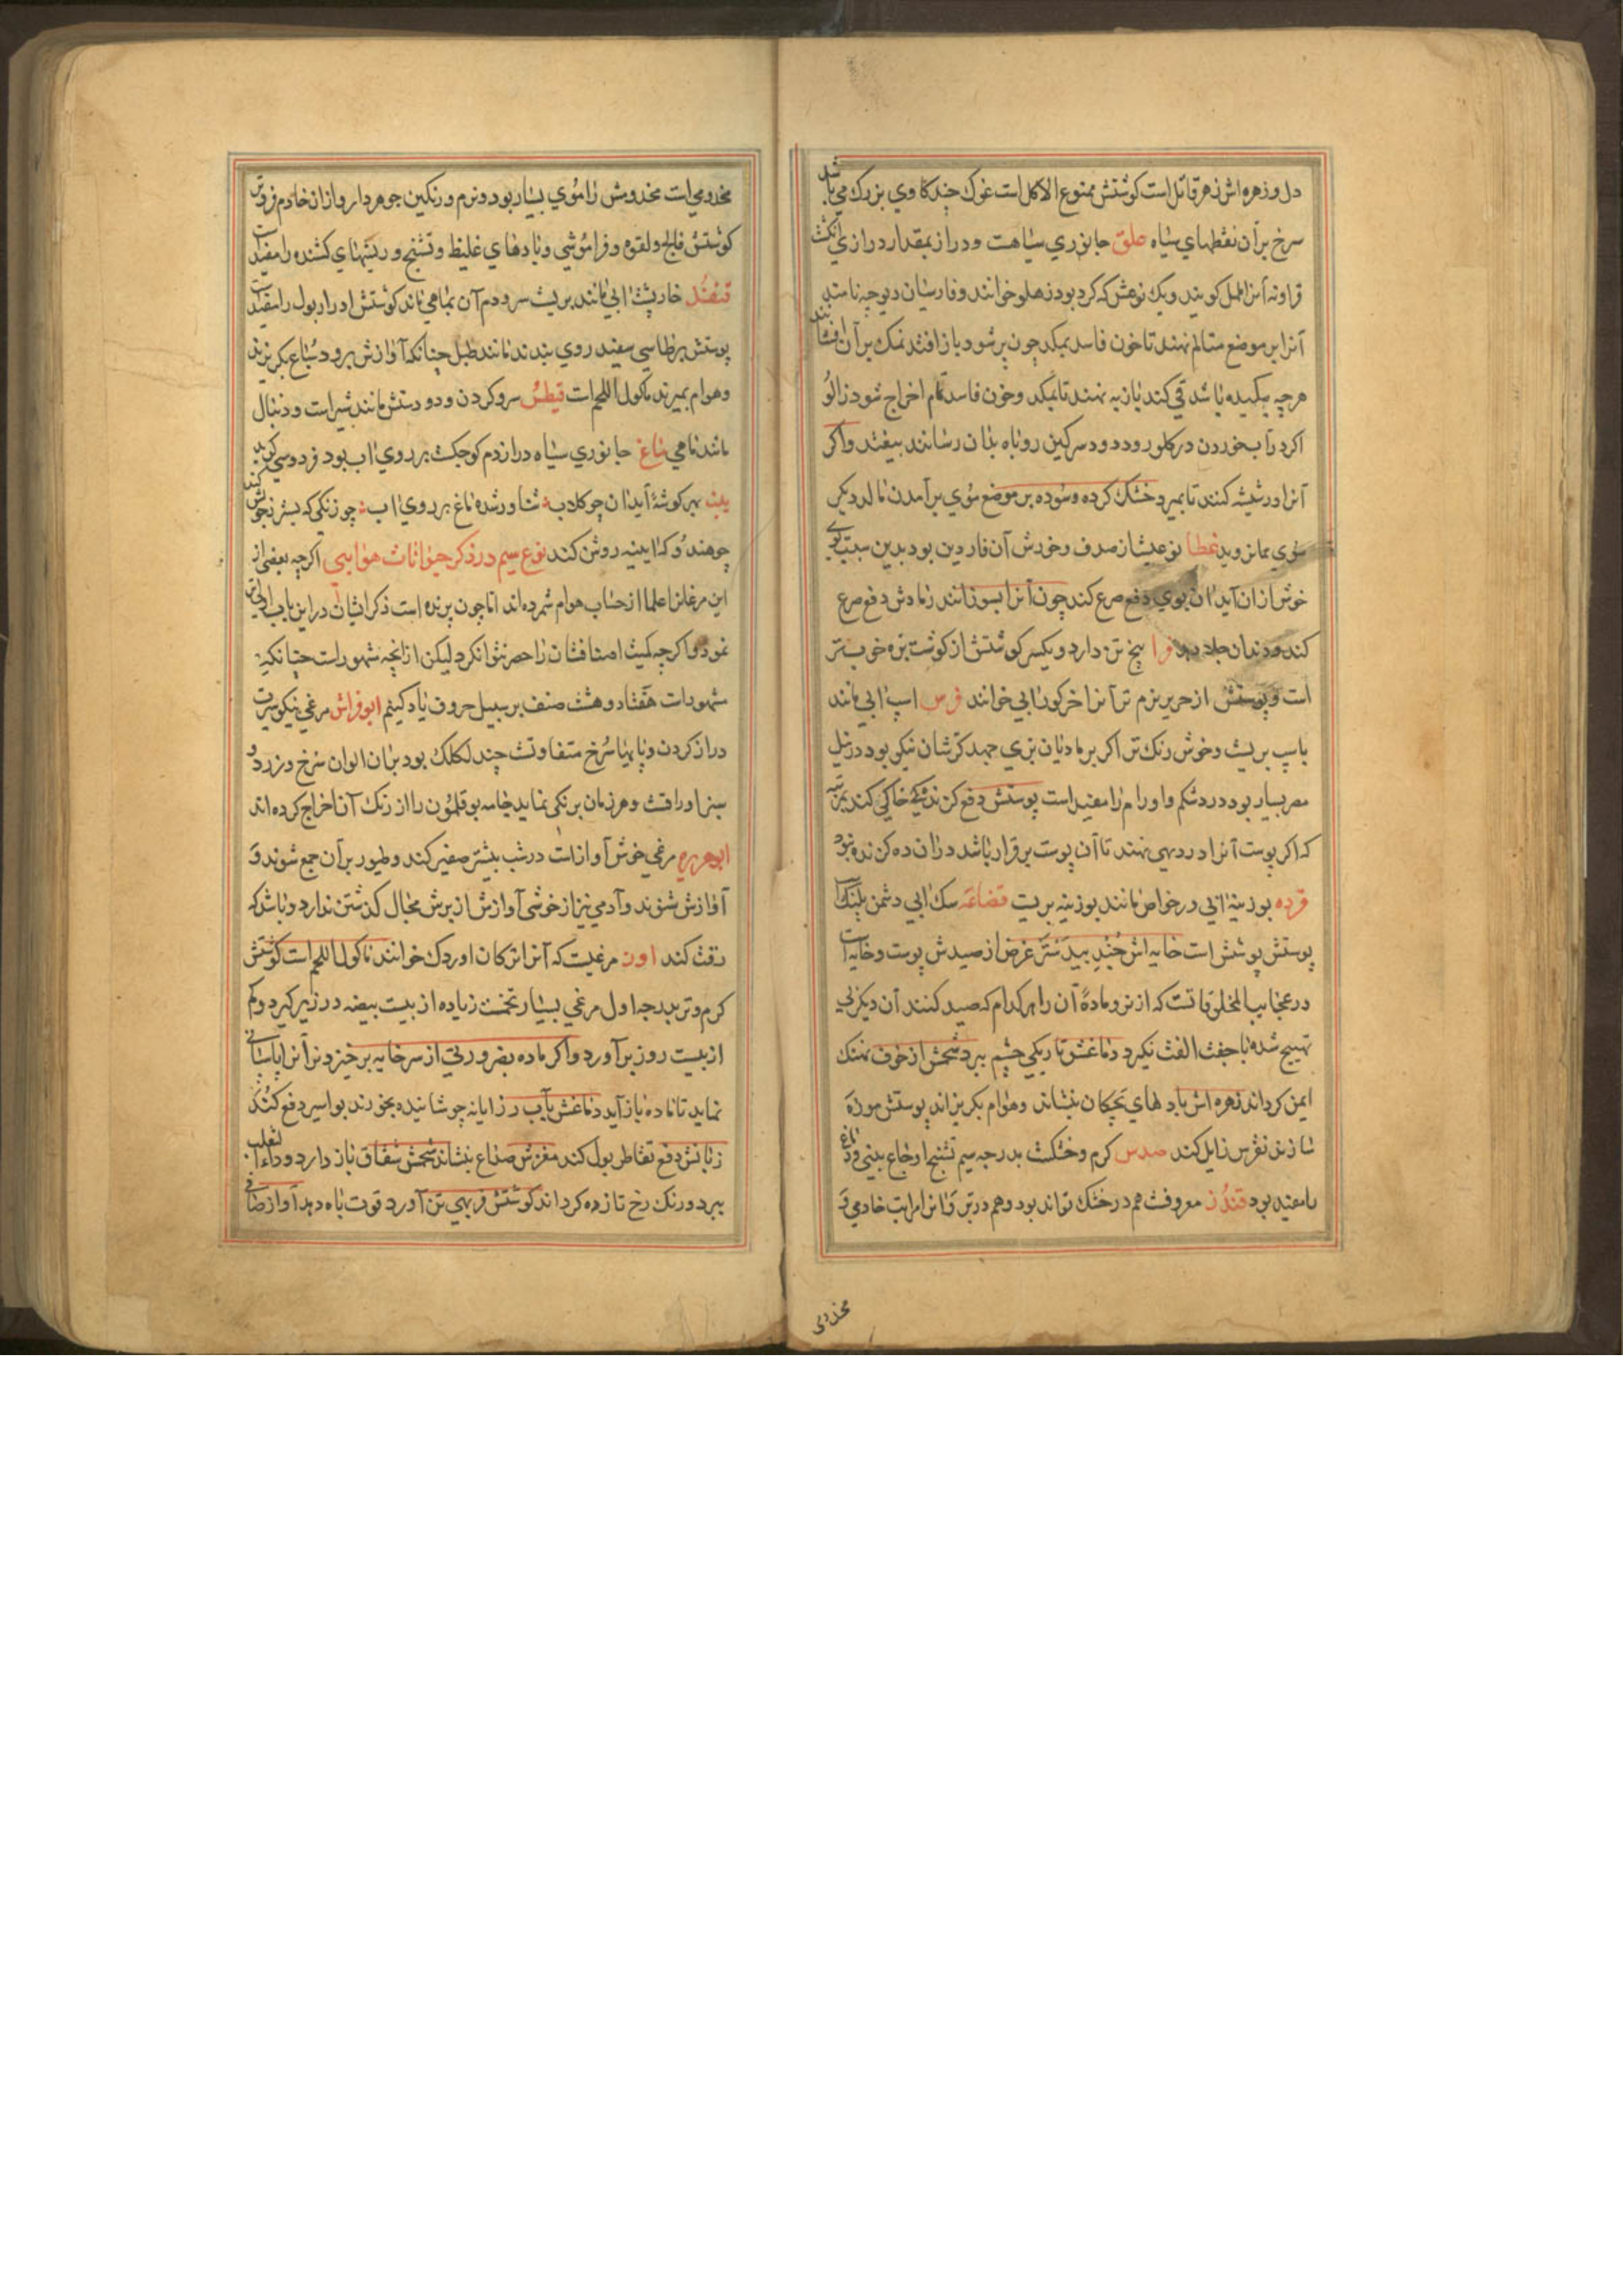 دل و زهره اش زهر قاتل است کوشتش ممنوع الاکل است غوک چند کاوی بزرک می باشد
سرخ بر آن نقطهای سیاه علق جانوری سیاهست و دراز بمقدار درازی انکشت
آنرا کویند و یک نوعش که کرد بود زهلو خوانند و فارسیان دیوچه نامند
آنرا بر موضع متالم نهند تا خون فاسد بمکد چون پر شود باز افتد نمک بر آن افشانند
هرچه مکیده باشد قی کند باز به نهند تا بمکد و خون فاسد تمام اخراج شود زالو
اکر در آب خوردن در کلو رود دود سرکین روباه بدان رسانند بیفتد و اکر
آنرا در شیشه کنند تا بمیرد خشک کرده و سوده بر موضع موی بر آمدن مالد دیکر
موی بر نروید غطا نوعیست از صدف و خورش آن ناردین بود بدین سبب بوی
خوش از آن آید آن بوی دفع صرع کند چون آنرا بسوزانند رمادش دفع صرع
کند و دندان جلا دهد فرا کوشتش از کوشت بره خوب تر
است و پوستش از حریر نرم تر آنرا خر کور آبی خوانند فرس اسپ آبی مانند
باسپ بریست و خوش رنک تر اکر بر مادیان بری جهد کره شان نیکو بود در نیل
مصر بسیار بود درد شکم و اورام را مفید است پوستش دفع کزند
که اکر پوست آنرا در دیهی نهند تا آن پوست برقرار باشد در آن ده کزنده نبود
قرده بوزینهٔ آبی در خواص مانند بوزینه بریست قضاعه سک آبی دشمن
پوستش پوشش است خایه اش جند بیدستر غرض از صیدش پوست و خایه است
در عجایب المخلوقاتست که از نر و مادهٔ آن را هر کدام که صید کنند آن دیکر
شده با جفت الفت نکیرد دماغش تاریکی چشم ببرد شحمش از خوف نهنک
ایمن کرداند زهره اش باد های بچکان بنشاند و هوام بکریزاند پوستش موزه
سازند نقرس زایل کند کرم و خشکست بدرجه سیم تشنج اوجاع بینی و دماغ
را مفید بود قندز معروفست هم در خشک تواند بود و هم در تر و آنرا مراتب خادمی و
مخدومی
مخدومی است مخدومش را موی بسیار بود و نرم و رنکین جوهردار و از آن خادم فروتر
کوشتش فالج و لقوه و فراموشی و بادهای غلیظ و تشنج و ریشهای کشنده را مفید است
قنفذ خارپشت آبی مانند بریست سر و دم آن بماهی ماند کوشتش ادرار بول را مفید است
پوستش بر طاسی سفید روی بندند مانند طبل چنانکه آوازش برود سباع بکریزند
و هوام بمیرند ماکول اللحم است قیطس سر و کردن و دو دستش مانند شیر است و دنبال
مانند ماهی ماغ جانوری سیاه دراز دم کوچک بر روی آب بود فردوسی کوید
بیت بهر کوشهٔ آبدان چو کلاب شناور شده ماغ بر روی آب چو زنکی که بستر ز جوشن کند
چو هندو که آیینه روشن کند نوع سیم در ذکر حیوانات هوایی اکرچه بعضی از
این مرغان را علما از حساب هوام شمرده اند اما چون پرنده است ذکر ایشان در این باب الیق
نمود و اکرچه کمیت اصنافشان را حصر نتوان کرد لیکن از آنچه مشهور است چنانکه
مشهورات هفتاد و هشت صنف بر سبیل حروف یاد کنیم ابو فراش مرغی نیکو سیرت
دراز کردن و پایها سرخ متفاوتست چند لکلک بود بر آن الوان سرخ و زرد و
سبز اوراقست و هر زمان برنکی نماید جامه بوقلمون را از رنک آن اخراج کرده اند
ابو هریره مرغی خوش آواز است در شب بیشتر صفیر کند و طیور بر آن جمع شوند و
آوازش شنوند و آدمی نیز از خوشی آوازش از برش مجال کذشتن ندارد و باشد که
رقت کند اوز مرغیست که آنرا ترکان اوردک خوانند ماکول اللحم است کوشتش
کرم و تر بدرجه اول مرغی بسیار تخمست زیاده از بیست بیضه در زیر کیرد و کم
از بیست روز بر آورد و اکر ماده بضرورتی از سر خایه بر خیزد نر آنرا پاسبانی
نماید تا ماده باز آید دماغش بآب رازیانه جوشانیده بخورند بواسیر دفع کند
زبانش دفع تقاطر بول کند مغزش صداع بنشاند شحمش شقاق باز دارد و داء الثعلب
ببرد و رنک رخ تازه کرداند کوشتش فربهی تن آورد قوت باه دهد آواز صافی